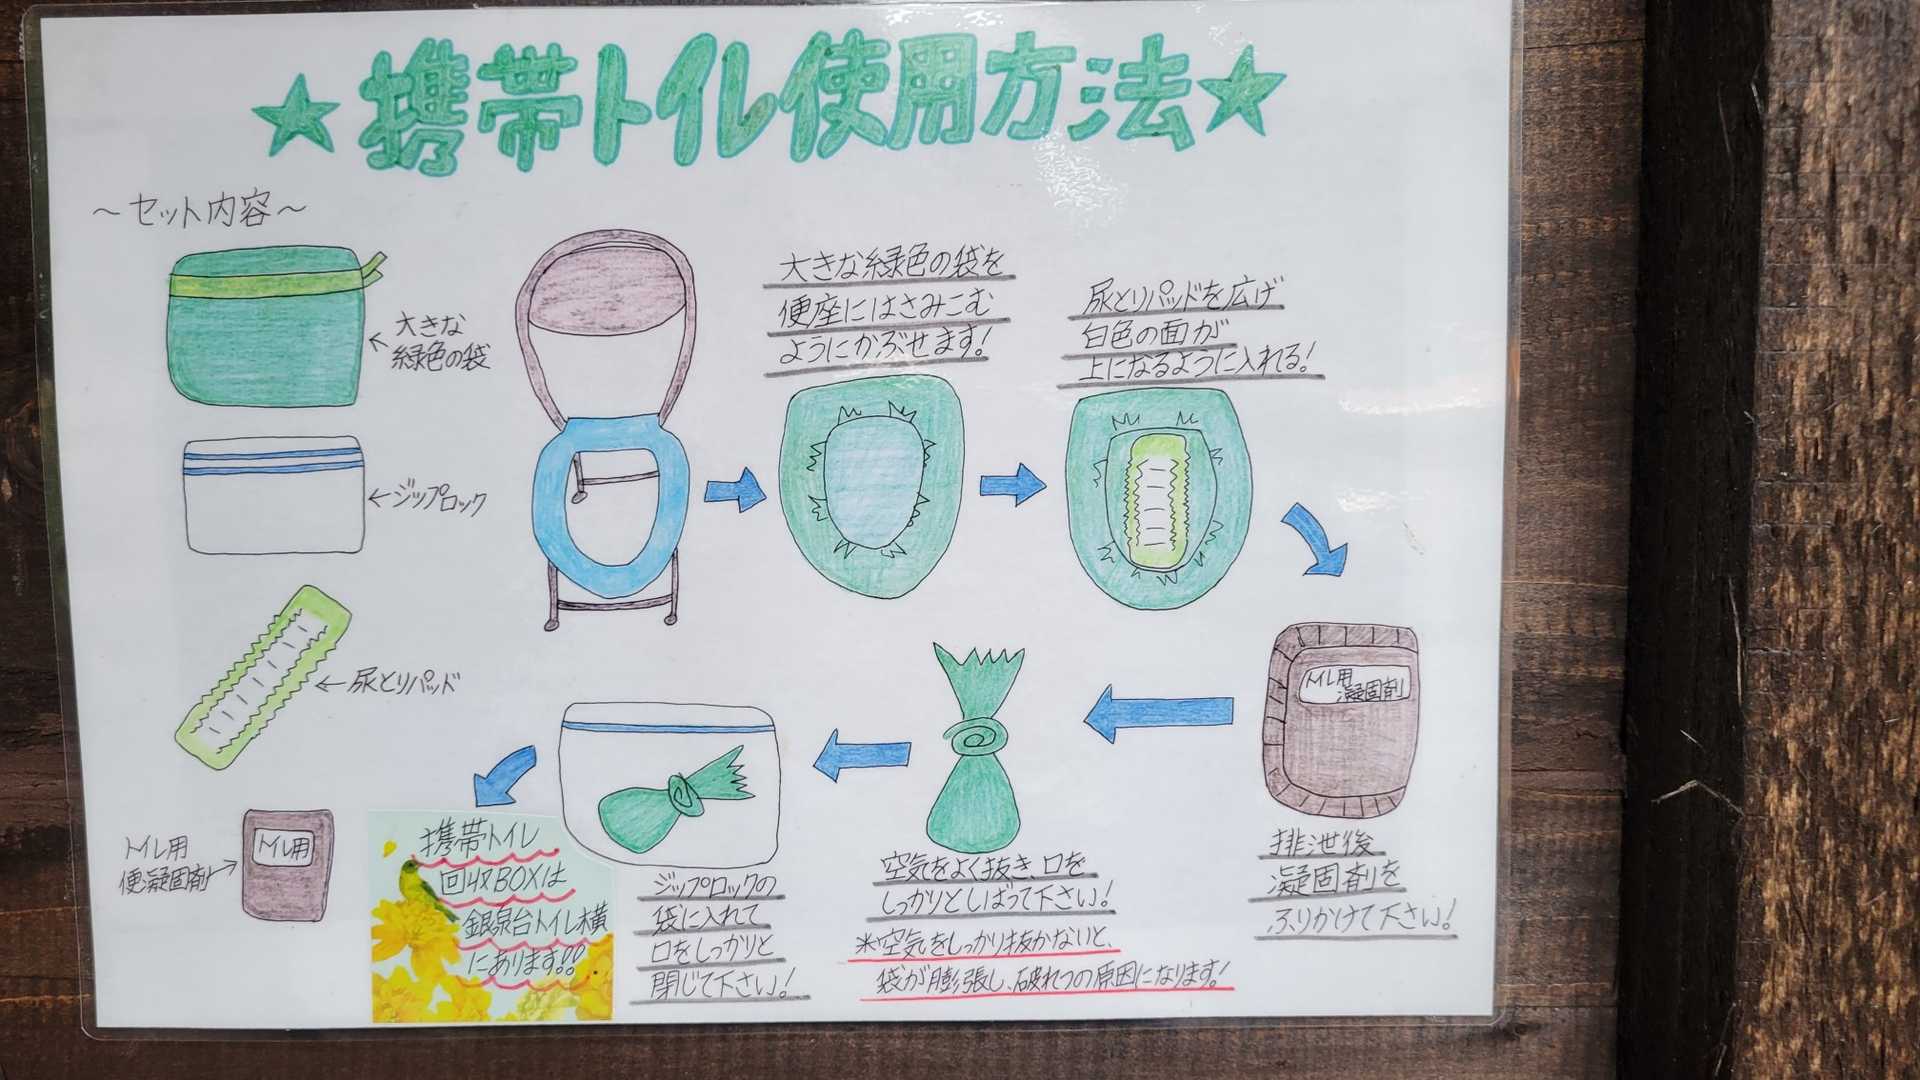 ★携帯トイレ使用方法★
～セット内容～
大きな
緑色の袋
ジップロック
尿とりパッド
トイレ用
便凝固剤
トイレ用
大きな緑色の袋を
便座にはさみこむ
ようにかぶせます!
尿とりパッドを広げ
白色の面が
上になるように入れる!
トイレ用
凝固剤
排泄後
凝固剤を
ふりかけて下さい!
空気をよく抜き、口を
しっかりとしばって下さい!
※空気をしっかり抜かないと、
袋が膨張し、破れつの原因になります!
ジップロックの
袋に入れて
口をしっかりと
閉じて下さい!
携帯トイレ
回収BOXは
銀泉台トイレ横
にあります!!